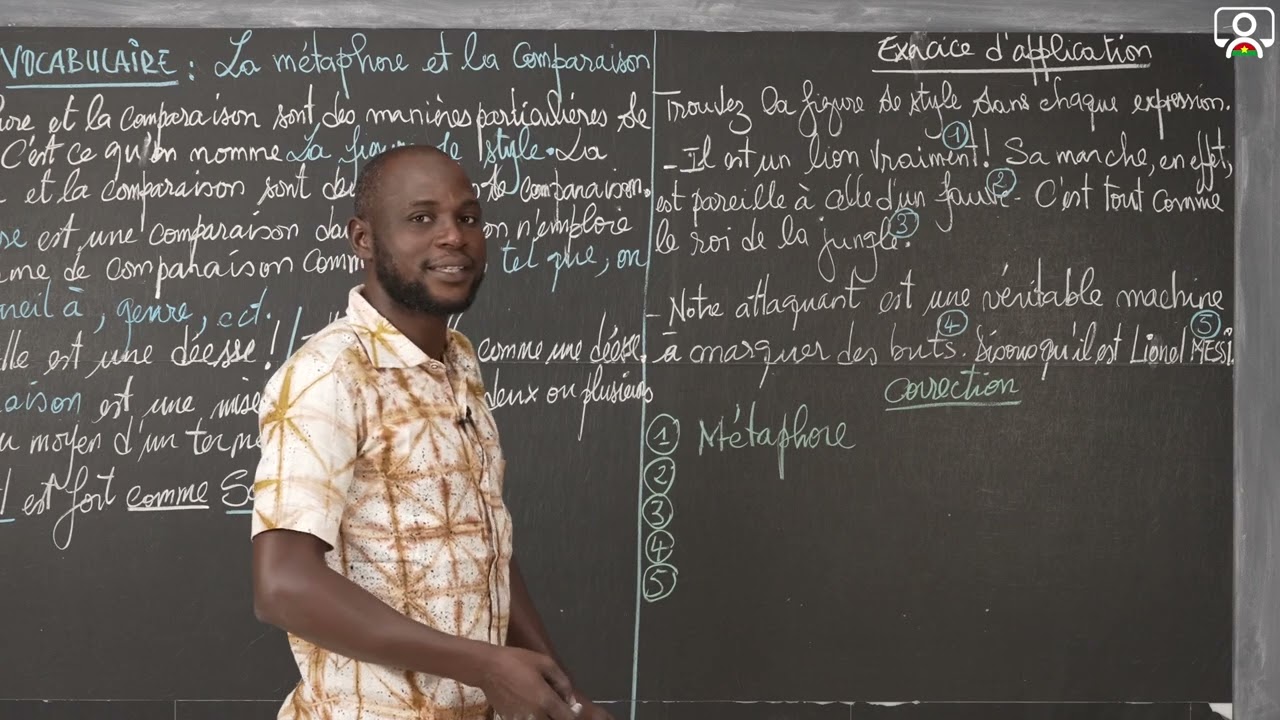 VOCABULAIRE : La métaphore et la Comparaison
et la comparaison sont des manières particulières de
C'est ce qu'on nomme La figure de style. La
et la comparaison sont de comparaison.
est une comparaison da on n'emploie
me de comparaison comm tel que, on
reil à, genre, ect.
lle est une déesse ! comme une déesse.
aison est une mise deux ou plusieurs
u moyen d'un terme
il est fort comme
Exercice d'application
Trouvez la figure de style dans chaque expression.
- Il est un lion vraiment ! ① Sa marche, en effet,
est pareille à celle d'un fauve ② - C'est tout comme
le roi de la jungle ③.
- Notre attaquant est une véritable machine
à marquer des buts. ④ Disons qu'il est Lionel MESSI. ⑤
Correction
① Métaphore
②
③
④
⑤